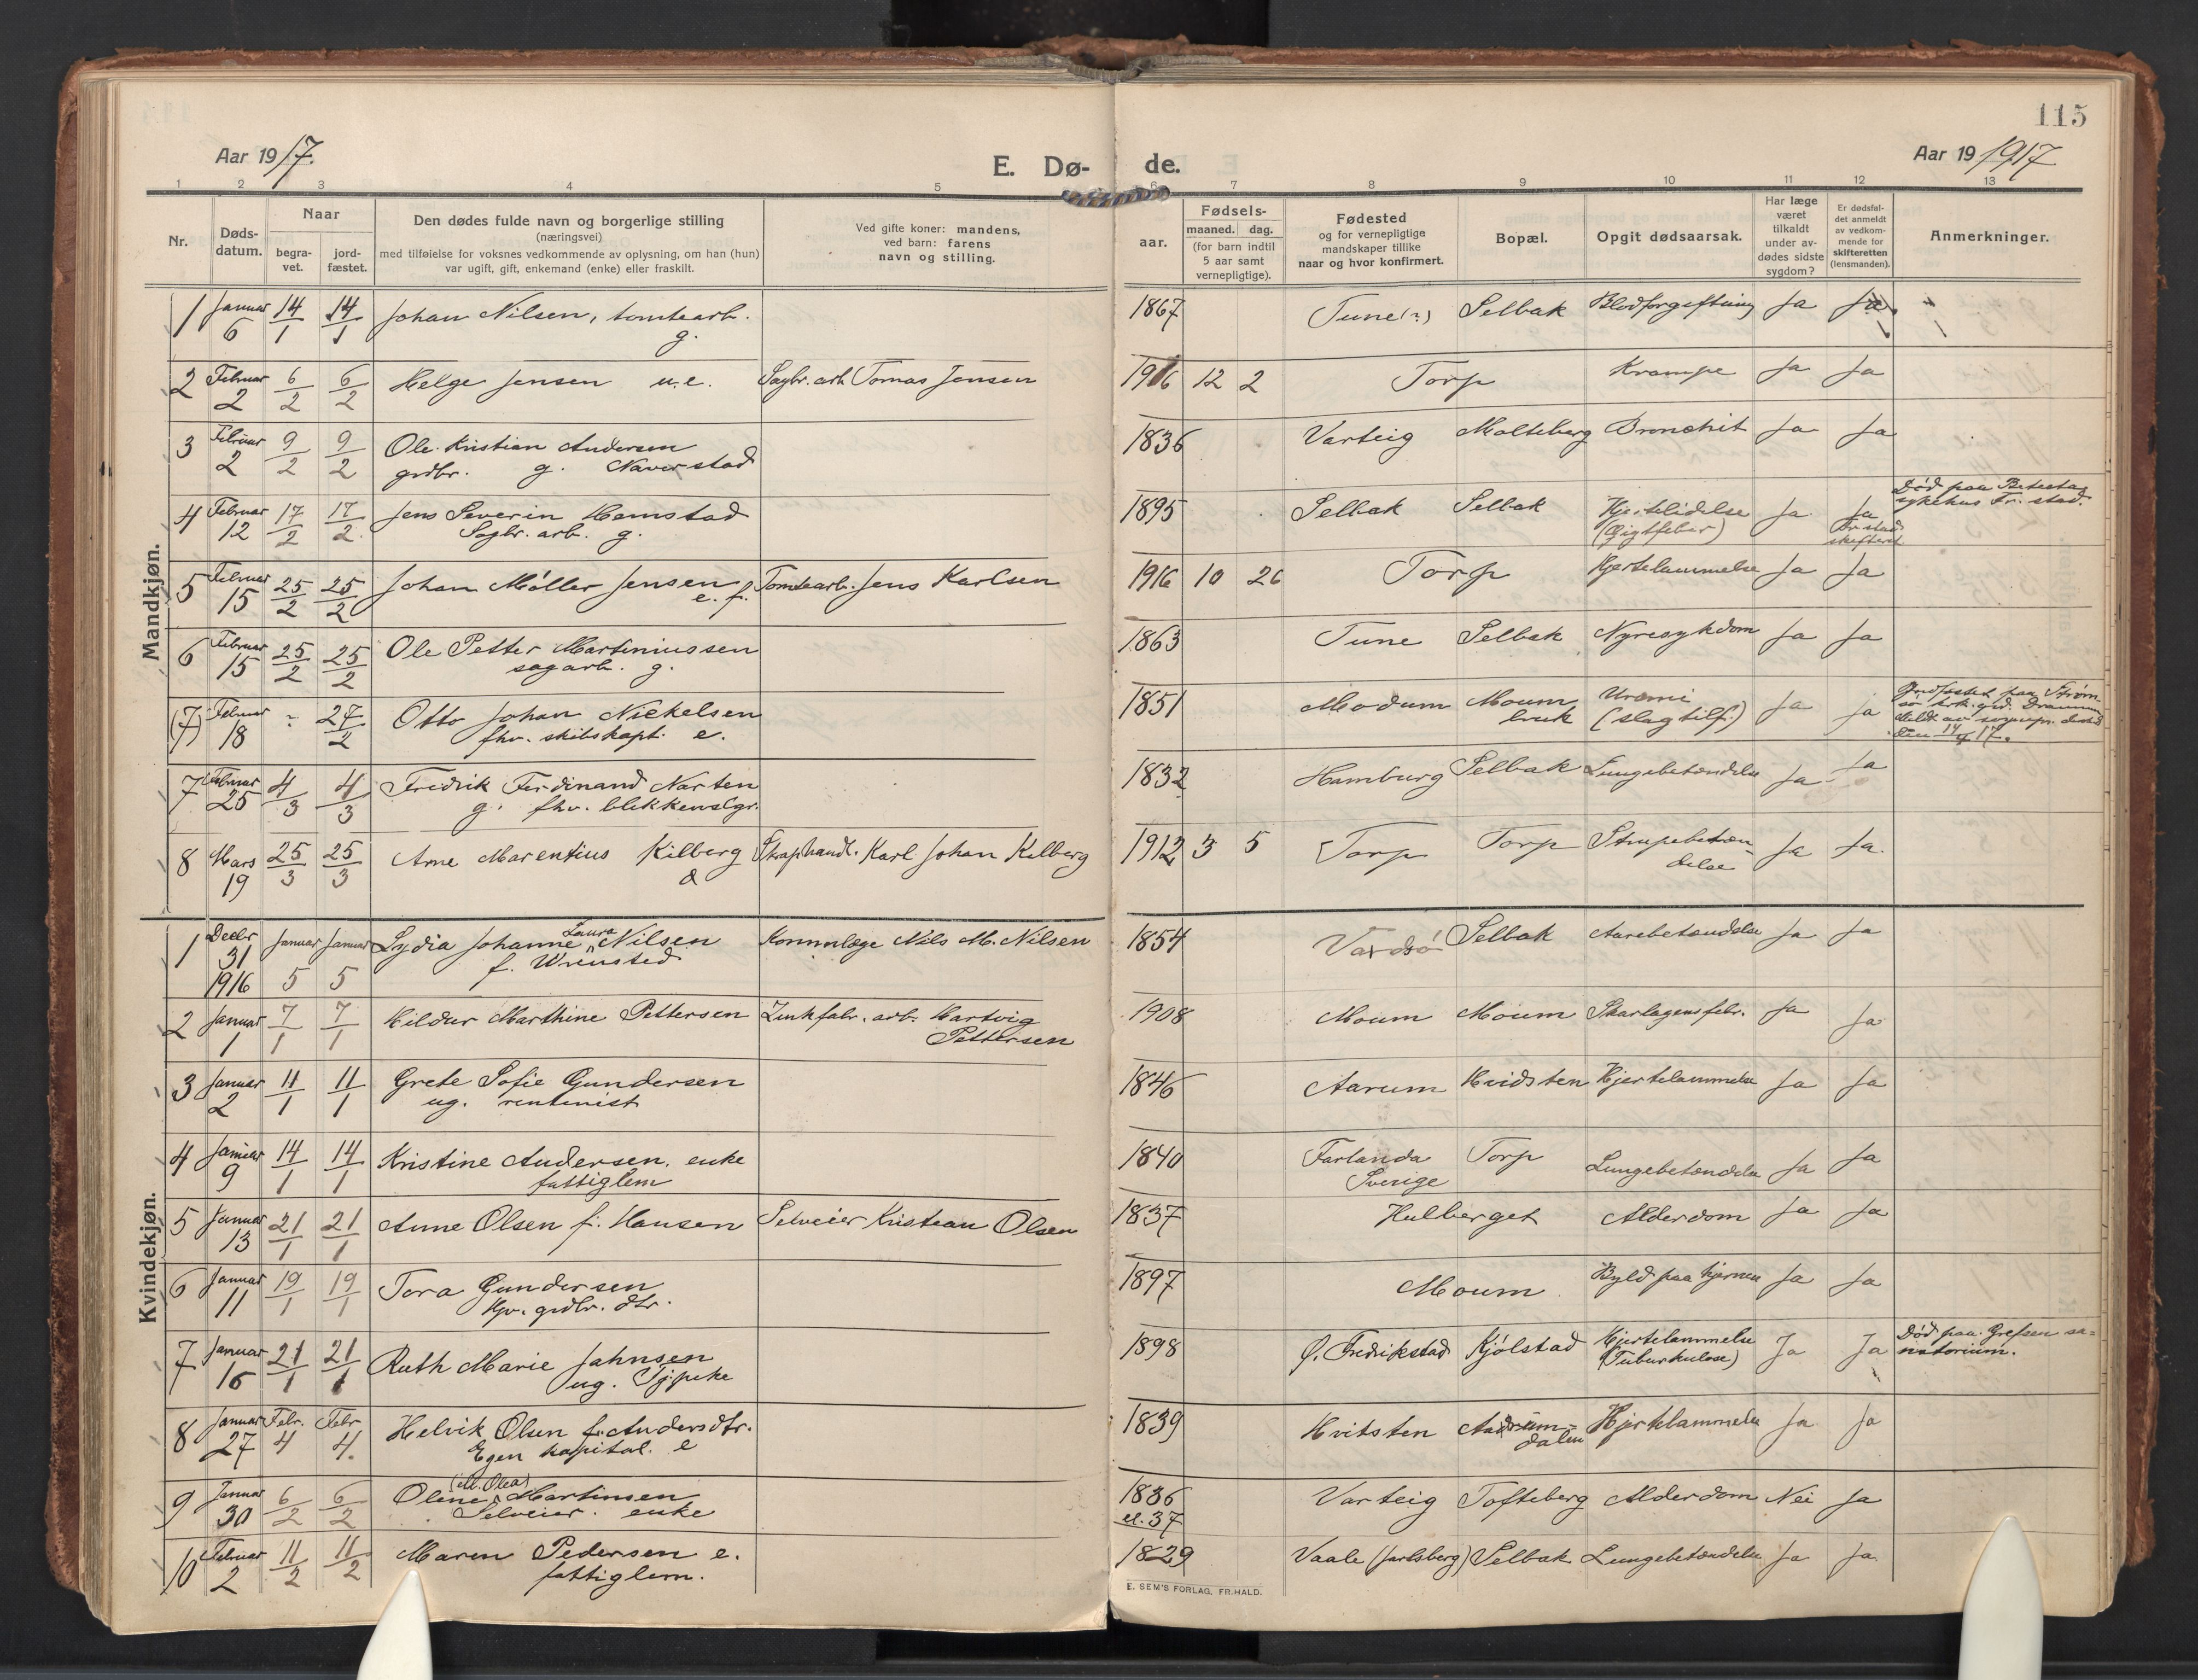 115
Aar 1917.
E. Dø-
de.
Aar 19 1917
1 2 3 4 5 6 7 8 9 10 11 12 13
Nr.
Døds-
datum.
Naar
begra-
vet.
jord-
fæstet.
Den dødes fulde navn og borgerlige stilling
(næringsvei)
med tilføielse for voksnes vedkommende av oplysning, om han (hun)
var ugift, gift, enkemand (enke) eller fraskilt.
Ved gifte koner: mandens,
ved barn: farens
navn og stilling.
Fødsels-
aar.
maaned. dag.
(for barn indtil
5 aar samt
vernepligtige).
Fødested
og for vernepligtige
mandskaper tillike
naar og hvor konfirmert.
Bopæl.
Opgit dødsaarsak.
Har læge
været
tilkaldt
under av-
dødes sidste
sygdom?
Er dødsfal-
det anmeldt
av vedkom-
mende for
skifteretten
(lensmanden).
Anmerkninger.
Mandkjøn.
1 Januar 6 14/1 14/1 Johan Nilsen, tomtearb. g. 1867 Tune(?) Selbak Blodforgiftning Ja Ja
2 Februar 2 6/2 6/2 Helge Jensen u.e. Sagbr. arb. Tomas Jensen 1916 12 2 Torp Krampe Ja Ja
3 Februar 2 9/2 9/2 Ole Kristian Andersen
grdbr. g. Naverstad 1836 Varteig Molteberg Bronchit Ja Ja
4 Februar 12 17/2 17/2 Jens Severin Hamstad
Sagbr. arb. g. 1895 Selbak Selbak Hjertelidelse
(Gigtfeber) Ja Ja
Fr.stad
skifteret Død paa Betesta
sykehus Fr.stad.
5 Februar 15 25/2 25/2 Johan Möller Jensen e. f. Tomtearb. Jens Karlsen 1916 10 26 Torp Hjertelammelse Ja Ja
6 Februar 15 25/2 25/2 Ole Petter Martiniussen
sagarb. g. 1863 Tune Selbak Nyresykdom Ja Ja
(7) Februar 18 ? 27/2 Otto Johan Nickelsen
fhv. skibskapt. e. 1851 Modum Moum
bruk Uræmi
(slagtilf.) Ja Ja Jordfæstet paa Strøm
den 14/4 17.
7 Februar 25 4/3 4/3 Fredrik Ferdinand Narten
g. fhv. blikkenslgr. 1832 Hamburg Selbak Lungebetændelse Ja Ja
8 Mars 19 25/3 25/3 Arne Marentius Kilberg Skraphandl. Karl Johan Kilberg 1912 3 5 Torp Torp Strupebetæn-
delse Ja Ja.
Kvindekjøn.
1 Decbr 31 1916 Januar 5 Januar 5 Lydia Johanne Laura Nilsen
f. Wrensted Kommlæge Nils M. Nilsen 1854 Vardø Selbak Aarebetændelse Ja Ja
2 Januar 1 7/1 7/1 Hildur Marthine Pettersen Zinkfabr. arb. Hartvig
Pettersen 1908 Moum Moum Skarlagensfebr. Ja Ja
3 Januar 2 11/1 11/1 Grete Sofie Gundersen
ug. rentenist 1846 Aarum Hvidsten Hjertelammelse Ja Ja
4 Januar 9 14/1 14/1 Kristine Andersen, enke
fattiglem 1840 Færlanda
Sverige Torp Lungebetændelse Ja Ja
5 Januar 13 21/1 21/1 Anne Olsen f. Hansen Selveier Kristian Olsen 1837 Hulberget Alderdom Ja Ja
6 Januar 11 19/1 19/1 Tora Gundersen
grdbr. dtr. 1897 Moum Byld paa hjernen Ja Ja
7 Januar 16 21/1 21/1 Ruth Marie Jahnsen
ug. Tjpike 1898 Ø. Fredrikstad Kjölstad Hjertelammelse
(Tuberkulose) Ja Ja Død paa Grefsen sa-
natorium.
8 Januar 27 Febr. 4 Febr 4. Helvik Olsen f. Andersdtr.
Egen kapital. e 1839 Hvitsten Hjertelammelse Ja Ja
9 Januar 30 6/2 6/2 Oline (el. Olea) Martinsen
Selveier. enke 1836
el. 37 Varteig Tofteberg Alderdom Nei Ja
10 Februar 2 11/2 11/2 Maren Pedersen e.
fattiglem. 1829 Vaale (Jarlsberg) Selbak Lungebetændelse Ja Ja.
E. SEM'S FORLAG, FR.HALD.